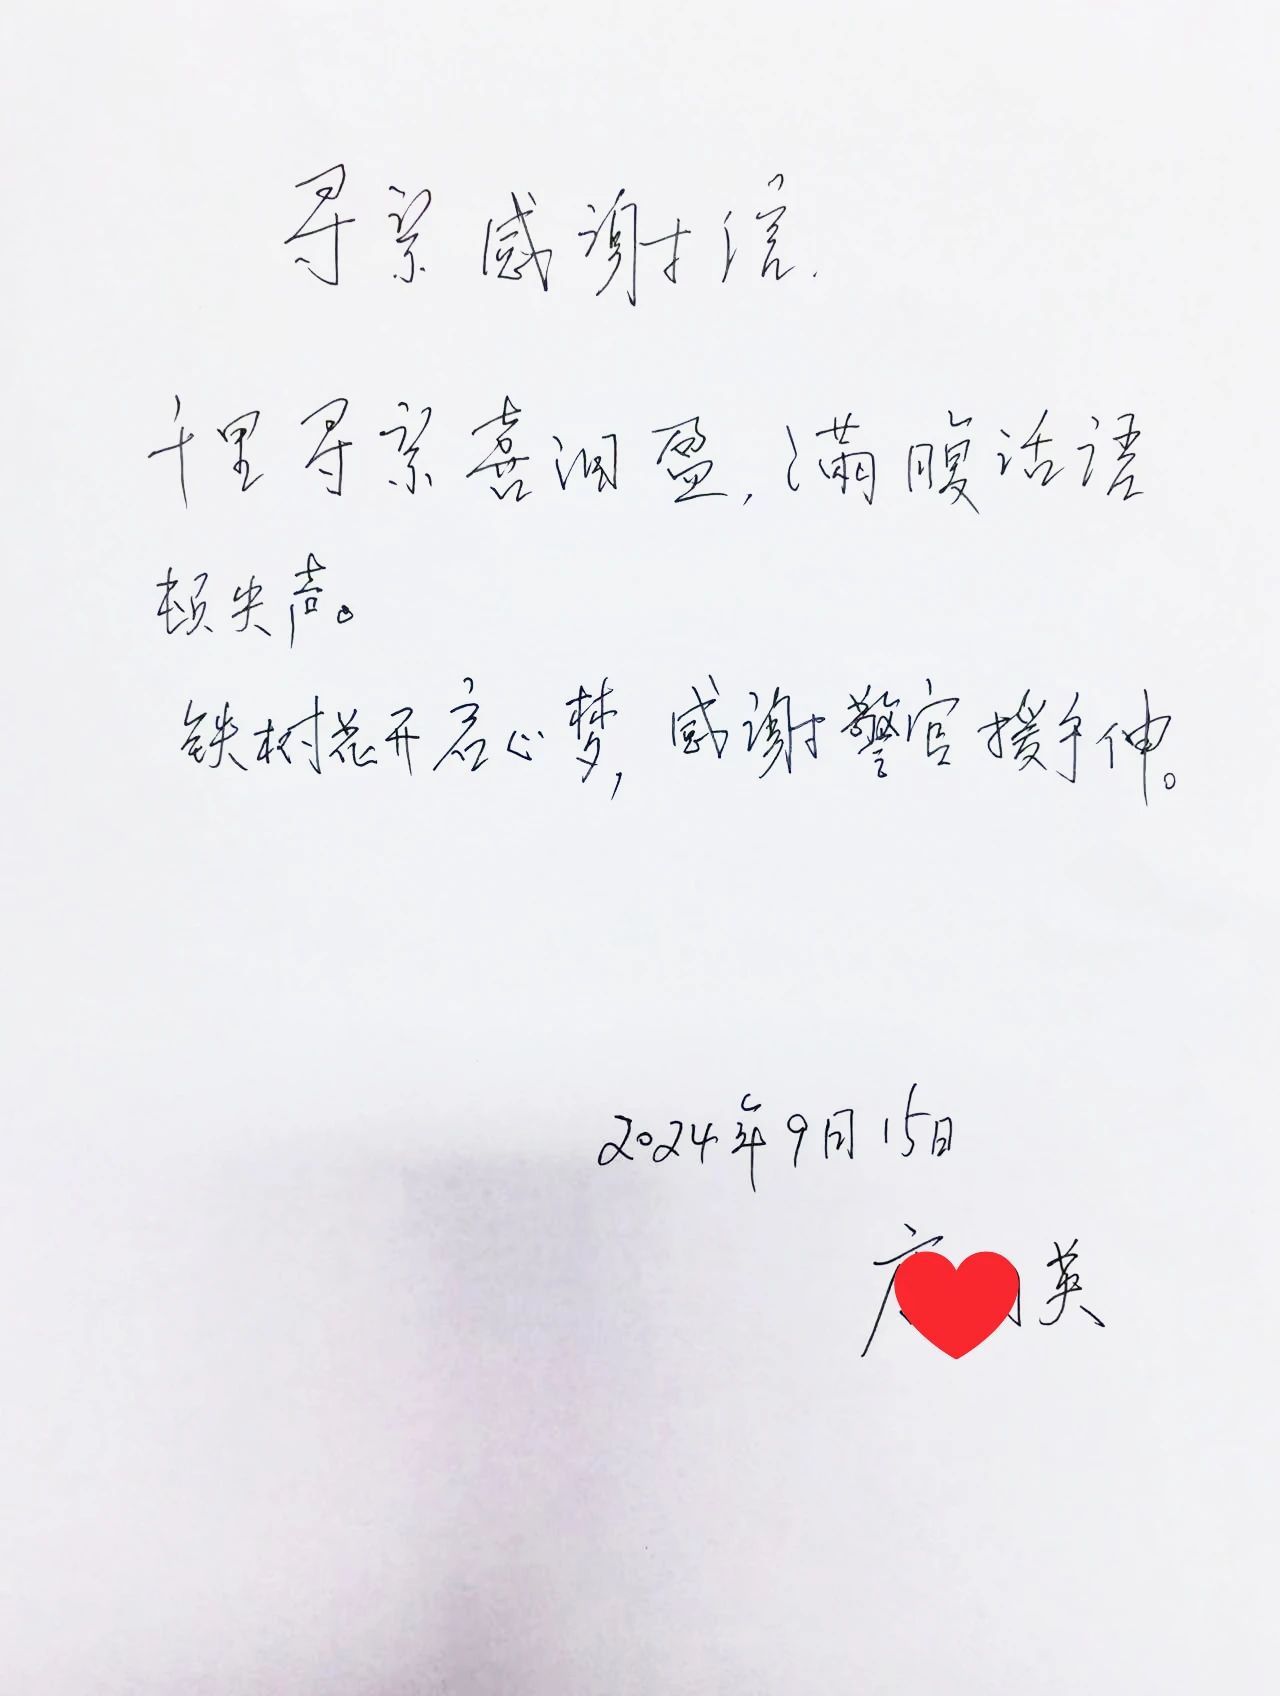 寻亲感谢信.
千里寻亲喜泪盈,满腹话语
顿失声。
铁树花开启心梦,感谢警官援手伸。
2024年9月15日
英